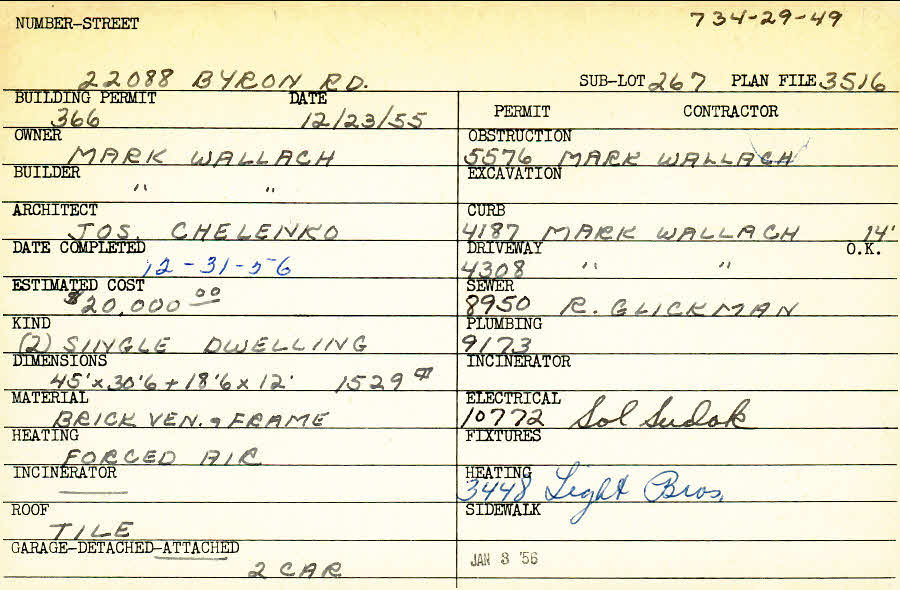 NUMBER-STREET 734-29-49
22088 BYRON RD. SUB-LOT 267 PLAN FILE 3516
BUILDING PERMIT DATE
366 12/23/55
OWNER
MARK WALLACH
BUILDER
" "
ARCHITECT
JOS. CHELENKO
DATE COMPLETED
12-31-56
ESTIMATED COST
$20,000 00
KIND
(2) SINGLE DWELLING
DIMENSIONS
45'x30'6+18'6x12' 1529
MATERIAL
BRICK VEN. & FRAME
HEATING
FORCED AIR
INCINERATOR
ROOF
TILE
GARAGE-DETACHED-ATTACHED
2 CAR
PERMIT CONTRACTOR
OBSTRUCTION
5576 MARK WALLACH
EXCAVATION
CURB
4187 MARK WALLACH 14'
DRIVEWAY O.K.
4308 " "
SEWER
8950 R. GLICKMAN
PLUMBING
9173
INCINERATOR
ELECTRICAL
10772 Sol Sudak
FIXTURES
HEATING
3448 Light Bros.
SIDEWALK
JAN 3 '56